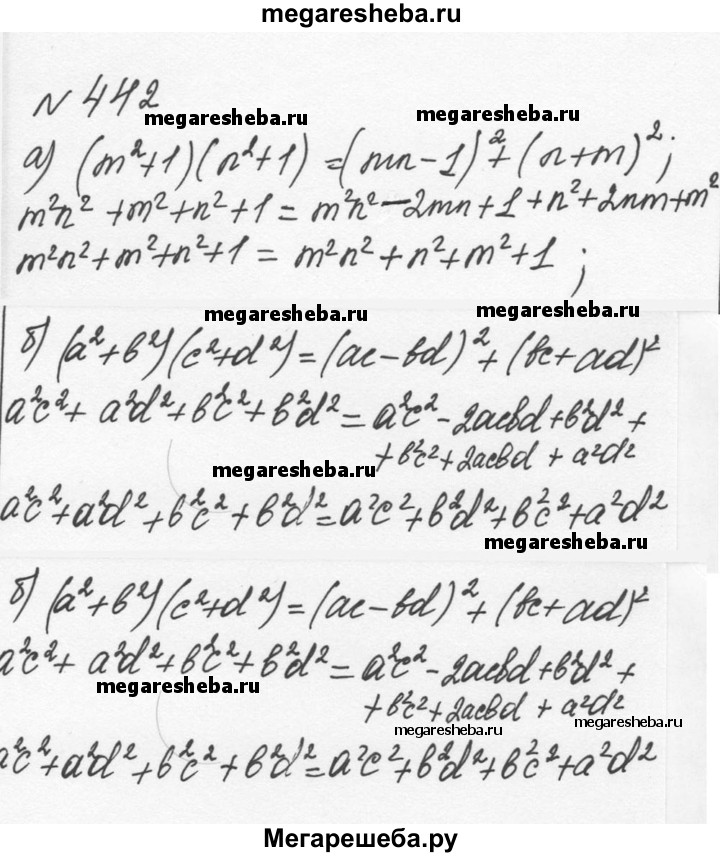 megaresheba.ru
№ 442
megaresheba.ru megaresheba.ru
а) (m²+1)(n²+1) =(mn-1)²+(n+m)²;
m²n²+m²+n²+1= m²n²-2mn+1+n²+2nm+m²
m²n²+m²+n²+1= m²n²+n²+m²+1;
megaresheba.ru megaresheba.ru
б) (a²+b²)(c²+d²)=(ac-bd)²+(bc+ad)²
a²c²+a²d²+b²c²+b²d²=a²c²-2acbd+b²d²+
+b²c²+2acbd+a²d²
megaresheba.ru
a²c²+a²d²+b²c²+b²d²=a²c²+b²d²+b²c²+a²d²
megaresheba.ru
б) (a²+b²)(c²+d²)=(ac-bd)²+(bc+ad)²
a²c²+a²d²+b²c²+b²d²=a²c²-2acbd+b²d²+
megaresheba.ru
+b²c²+2acbd+a²d²
megaresheba.ru megaresheba.ru
a²c²+a²d²+b²c²+b²d²=a²c²+b²d²+b²c²+a²d²
Мегарешеба.ру